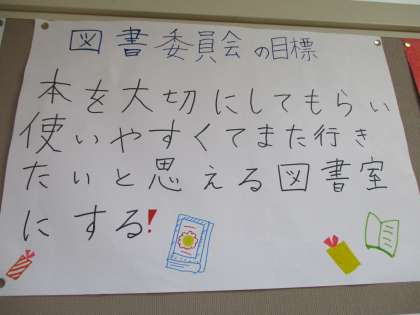 図書委員会の目標
本を大切にしてもらい
使いやすくてまた行き
たいと思える図書室
にする!